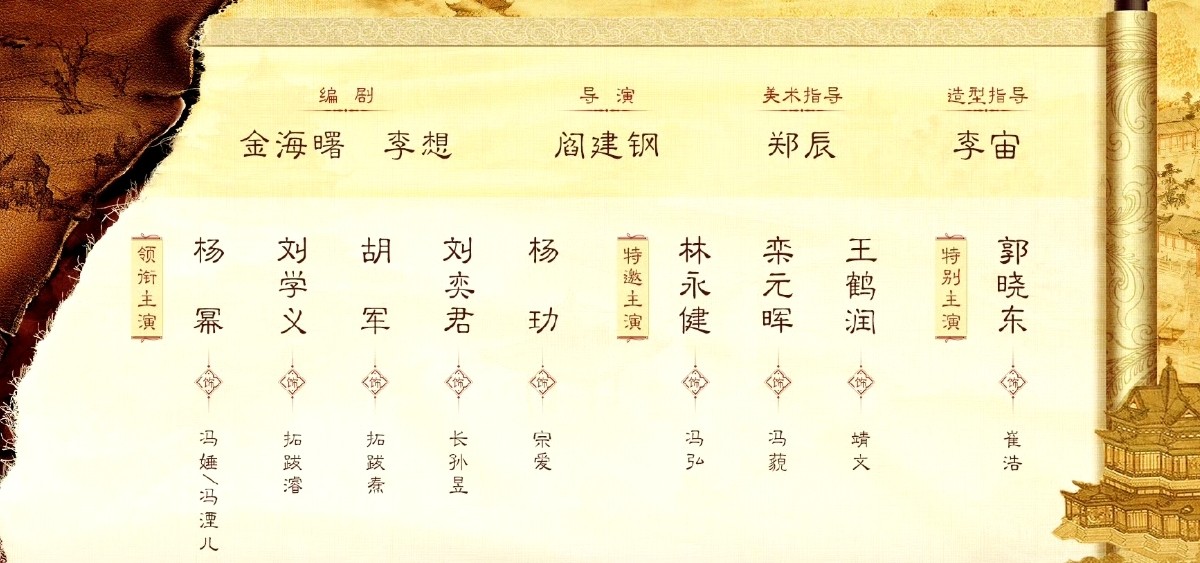 编 剧
金海曙 李想
导 演
阎建钢
美术指导
郑辰
造型指导
李宙
领衔主演
杨幂
饰
冯娷/冯湮儿
刘学义
饰
拓跋濬
胡军
饰
拓跋焘
刘奕君
饰
长孙昱
杨玏
饰
宗爱
特邀主演
林永健
饰
冯弘
栾元晖
饰
冯藐
王鹤润
饰
靖文
特别主演
郭晓东
饰
崔浩